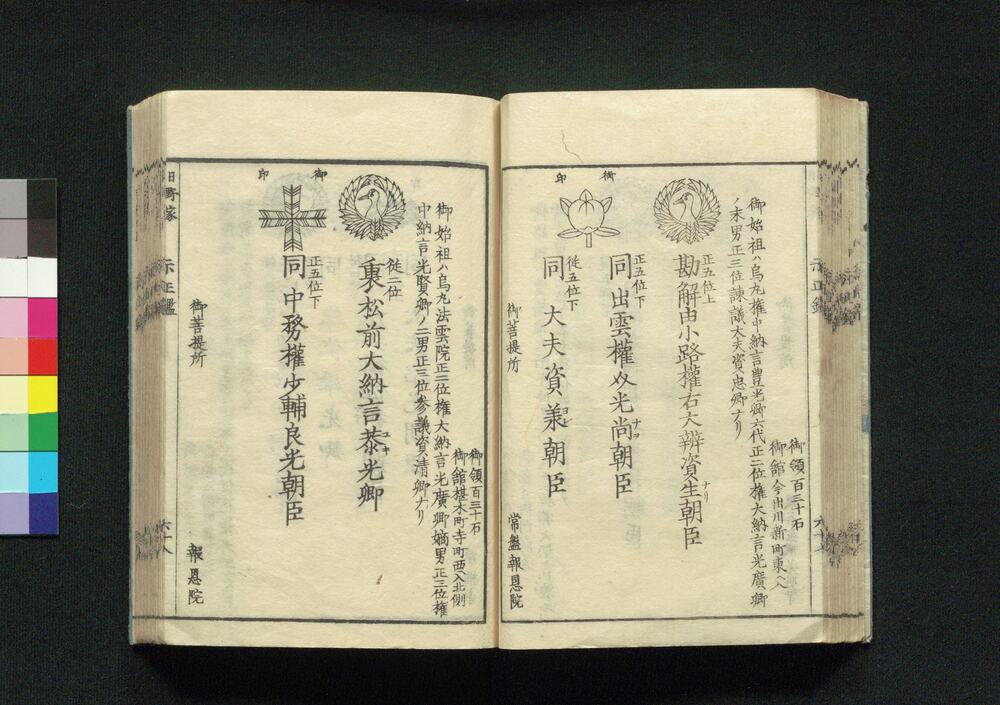 御領百三十石
御館今出川新町東ヘ入
御始祖ハ烏丸権中納言豊光卿六代正二位権大納言光廣卿
ノ末男正三位諫議大夫資忠卿ナリ
正五位上
勘解由小路權右大辨資生朝臣
ナリ
正五位下
同出雲權介光尚朝臣
ナヲ
御印
從五位下
同大夫資義朝臣
ヨシ
御菩提所
常盤報恩院
御領百三十石
御館椹木町寺町西入北側
御始祖ハ烏丸法雲院正二位権大納言光廣卿嫡男正三位権
中納言光賢卿ノ二男正三位参議資清卿ナリ
從二位
裏松前大納言恭光卿
ユキ
御印
正五位下
同中務權少輔良光朝臣
御菩提所
報恩院
日野家
六十八